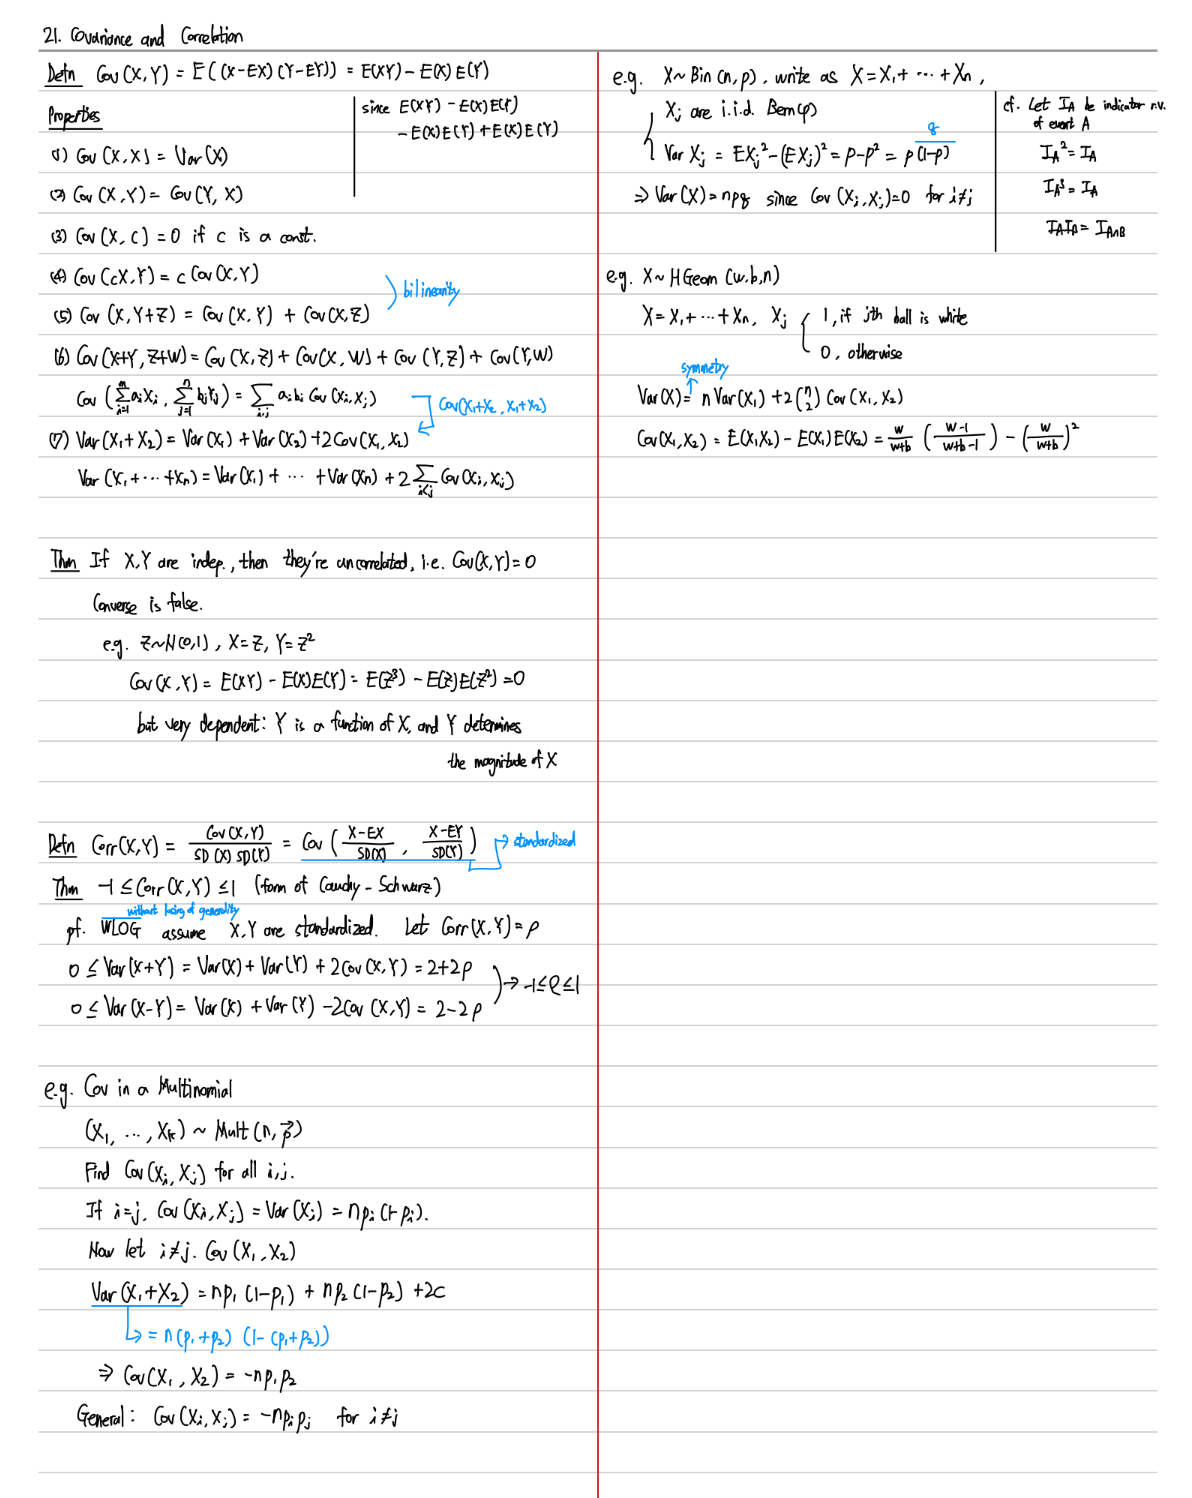 21. Covariance and Correlation
Defn Cov(X,Y) = E((X-EX)(Y-EY)) = E(XY) - E(X)E(Y)
since E(XY) - E(X)E(Y)
- E(X)E(Y) + E(X)E(Y)
Properties
(1) Cov(X,X) = Var(X)
(2) Cov(X,Y) = Cov(Y,X)
(3) Cov(X,C) = 0 if c is a const.
(4) Cov(cX,Y) = c Cov(X,Y)
(5) Cov(X,Y+Z) = Cov(X,Y) + Cov(X,Z)
bilinearity
(6) Cov(X+Y, Z+W) = Cov(X,Z) + Cov(X,W) + Cov(Y,Z) + Cov(Y,W)
Cov(∑_{i=1}^{m} a_i X_i, ∑_{j=1}^{n} b_j Y_j) = ∑_{i,j} a_i b_i Cov(X_i, X_j)
Cov(X₁+X₂, X₁+X₂)
(7) Var(X₁+X₂) = Var(X₁) + Var(X₂) + 2Cov(X₁,X₂)
Var(X₁+⋯+X_n) = Var(X₁) + ⋯ + Var(X_n) + 2∑_{i<j} Cov(X_i,X_j)
Thm If X,Y are indep., then they're uncorrelated, i.e. Cov(X,Y)=0
Converse is false.
e.g. Z~N(0,1), X=Z, Y=Z²
Cov(X,Y) = E(XY) - E(X)E(Y) = E(Z³) - E(Z)E(Z²) = 0
but very dependent: Y is a function of X, and Y determines
the magnitude of X
Defn Corr(X,Y) = Cov(X,Y) / SD(X)SD(Y) = Cov( (X-EX)/SD(X), (X-EY)/SD(Y) ) → standardized
Thm -1 ≤ Corr(X,Y) ≤ 1 (form of Cauchy-Schwarz)
without losing of generality
pf. WLOG assume X,Y are standardized. Let Corr(X,Y)=ρ
0 ≤ Var(X+Y) = Var(X) + Var(Y) + 2Cov(X,Y) = 2+2ρ
0 ≤ Var(X-Y) = Var(X) + Var(Y) - 2Cov(X,Y) = 2-2ρ
→ -1≤ρ≤1
e.g. Cov in a Multinomial
(X₁, ⋯, X_k) ~ Mult(n, p⃗)
Find Cov(X_i,X_j) for all i,j.
If i=j, Cov(X_i,X_j) = Var(X_i) = np_i(1-p_i).
Now let i≠j. Cov(X₁,X₂)
Var(X₁+X₂) = np₁(1-p₁) + np₂(1-p₂) + 2c
↳ = n(p₁+p₂)(1-(p₁+p₂))
⇒ Cov(X₁,X₂) = -np₁p₂
General: Cov(X_i,X_j) = -np_ip_j for i≠j
e.g. X~Bin(n,p), write as X=X₁+⋯+X_n,
X_j are i.i.d. Bern(p)
q
Var X_j = EX_j² - (EX_j)² = p-p² = p(1-p)
⇒ Var(X) = npq since Cov(X_i,X_j)=0 for i≠j
cf. Let I_A be indicator r.v.
of event A
I_A² = I_A
I_A³ = I_A
I_A I_B = I_{A∩B}
e.g. X~HGeom(w,b,n)
X=X₁+⋯+X_n, X_j { 1, if jth ball is white
0, otherwise
symmetry
Var(X) = n Var(X₁) + 2(n 2) Cov(X₁,X₂)
Cov(X₁,X₂) = E(X₁X₂) - E(X₁)E(X₂) = w/(w+b) ((w-1)/(w+b-1)) - (w/(w+b))²